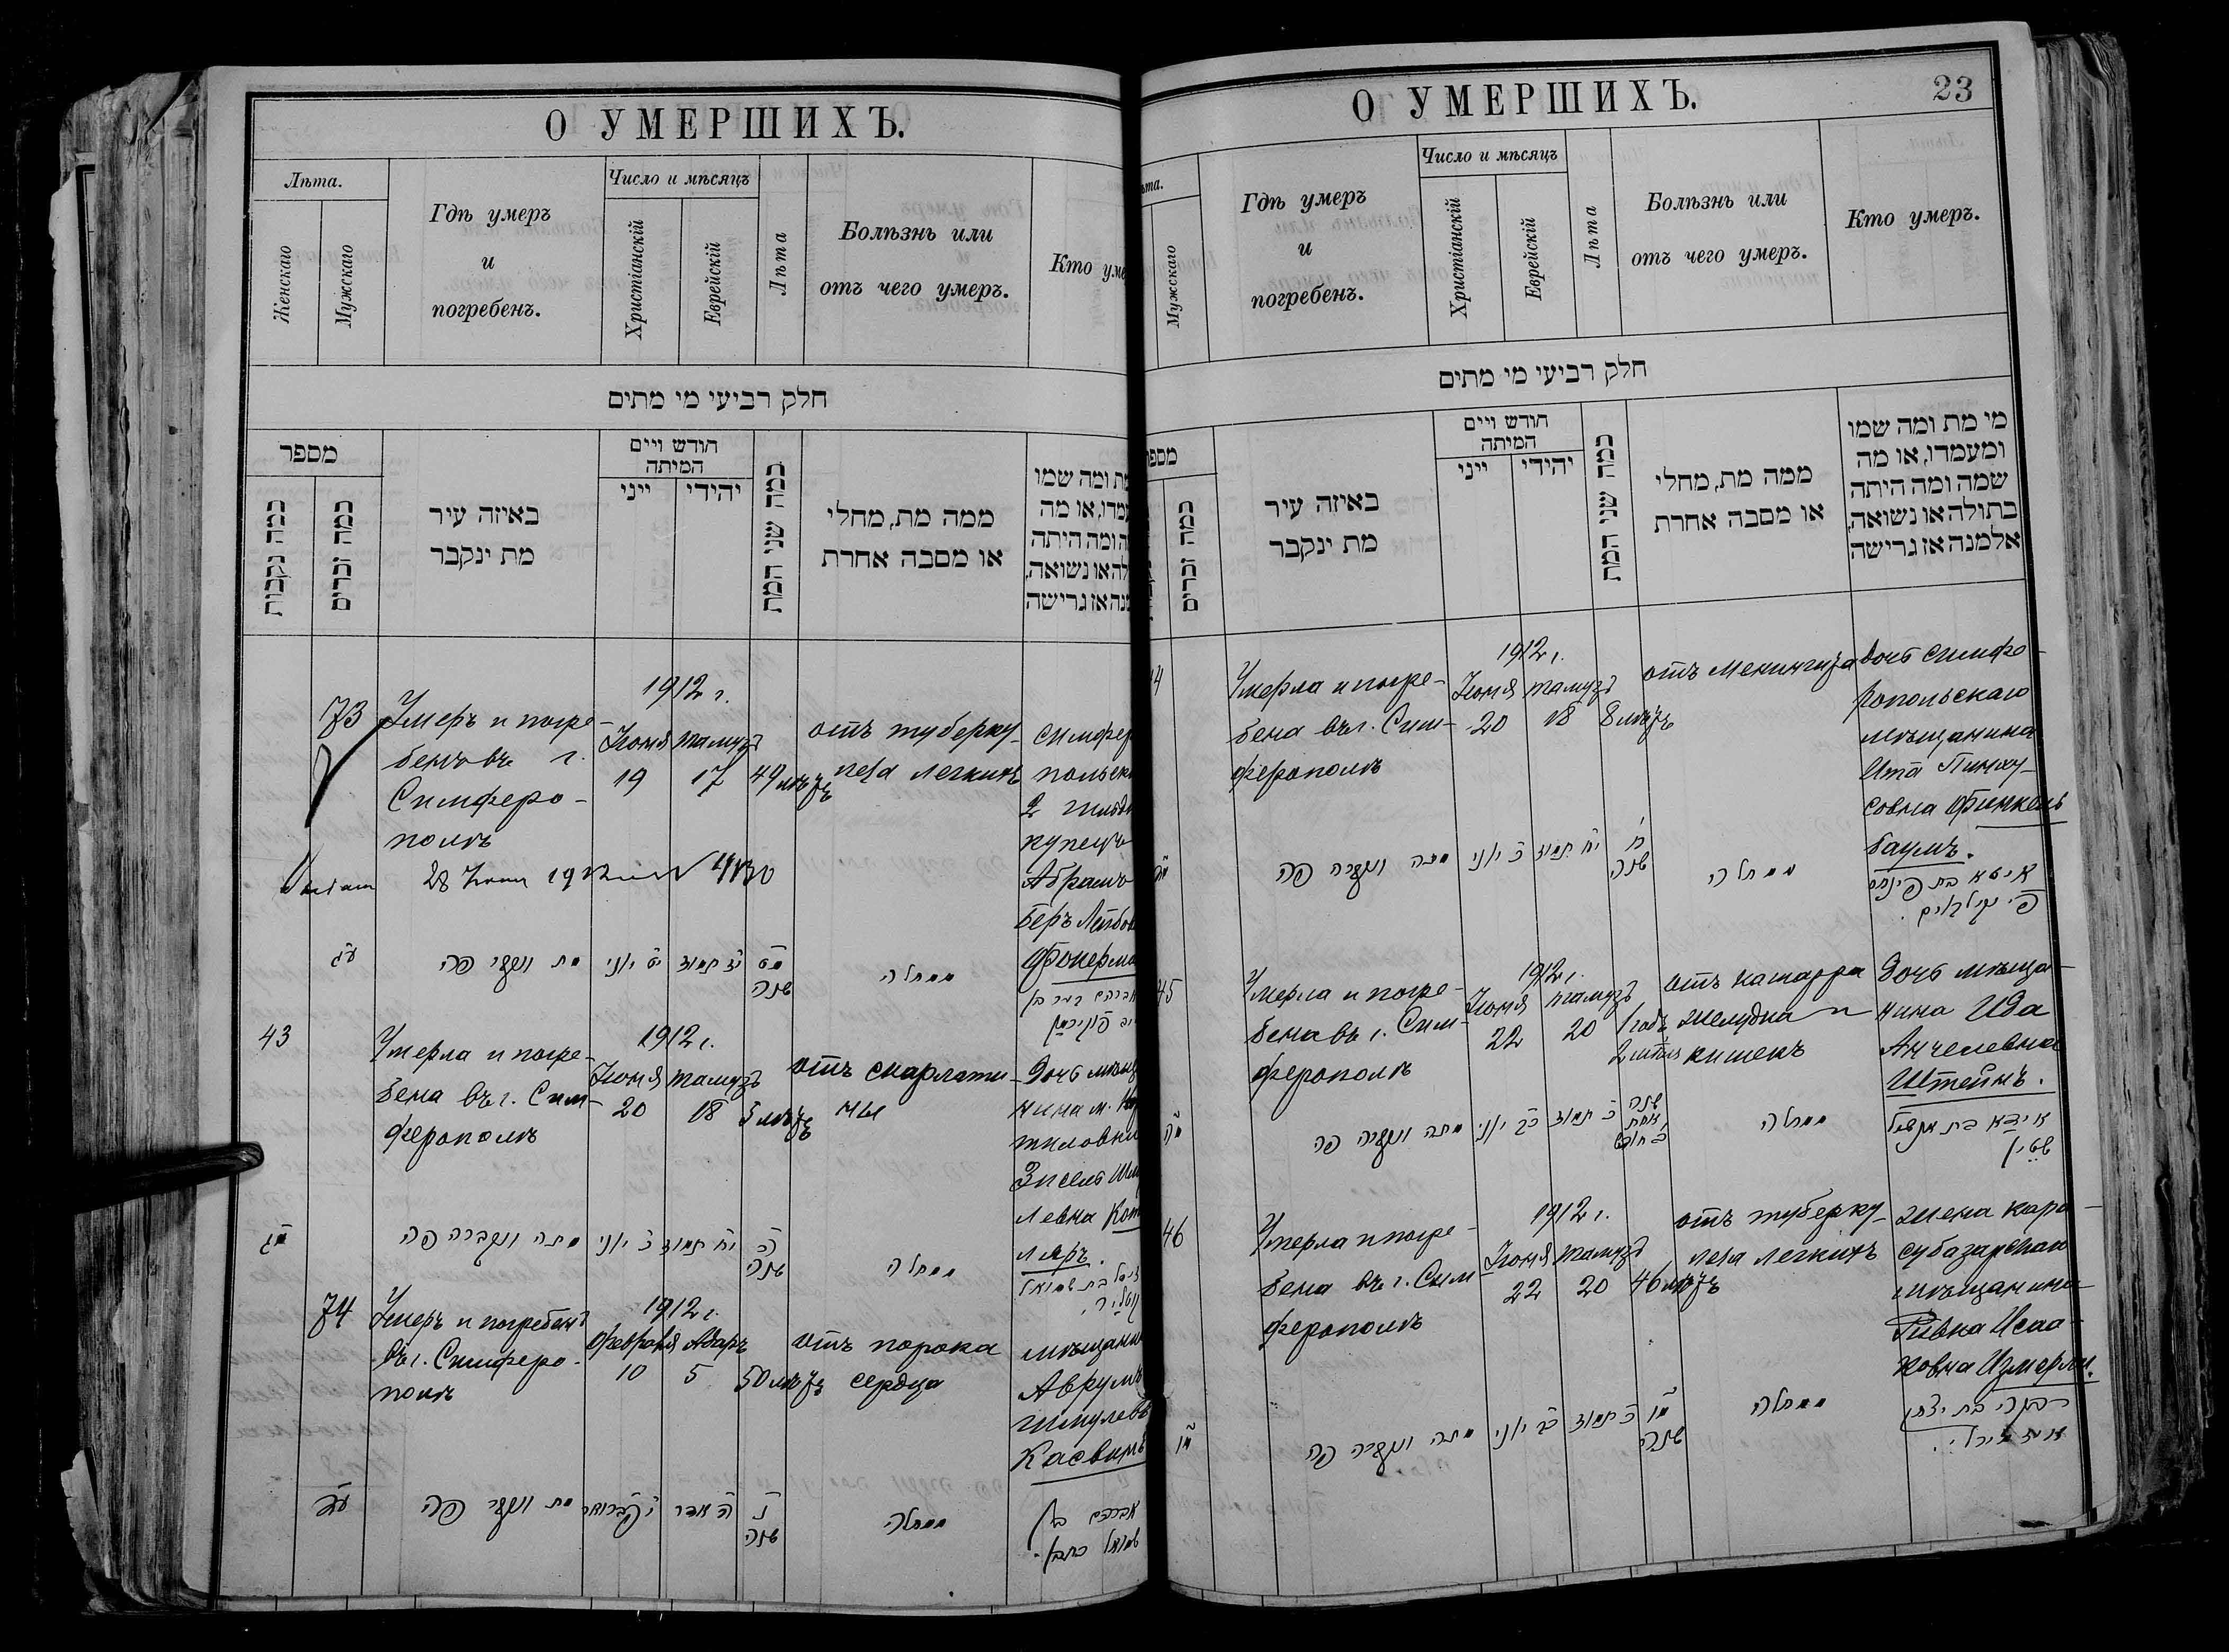 О УМЕРШИХЪ.
Лѣта.
Женскаго
Мужскаго
Гдѣ умеръ
и
погребенъ.
Число и мѣсяцъ
Христіанскій
Еврейскій
Лѣта
Болѣзнь или
отъ чего умеръ.
Кто уме
חלק רביעי מי מתים
מספר
כמה נקבות
כמה זכרים
באיזה עיר
מת ינקבר
חודש ויים
המיתה
ייני
יהודי
כמה שני המת
ממה מת, מחלי
או מסבה אחרת
מת ומה שמו
עמדו, או מה
ה ומה היתה
לה או נשואה,
מנה או גרישה
73
Умеръ и погре-
бенъ въ г.
Симферо-
полѣ
1912 г.
Іюня
19
Тамузъ
17
49 лѣтъ
отъ туберку-
леза легкихъ
Симфер
польск
2 гильд
купецъ
Абрамъ
Беръ Лейбов
Фокерма
28
עג
מת ונקבר פה
יט יוני
יז תמוז
מט
שנה
ממחלה
43
Умерла и погре-
бена въ г. Сим-
ферополѣ
1912 г.
Іюня
20
Тамузъ
18
5 лѣтъ
отъ скарлати-
ны
Дочь мѣщ
нина м.
тиловки
Зисель Шму
левна Кот
ляръ.
מג
מתה ונקברה פה
כ יוני
יח תמוז
ה
שנה
ממחלה
זיסל בת שמואל
קטליר.
74
Умеръ и погребенъ
въ г. Симферо-
полѣ
1912 г.
Февраля
10
Адаръ
5
50 лѣтъ
отъ порока
сердца
мѣщани
Аврумъ
Шмулев
Касвинъ
עד
מת ונקבר פה
ה אדר
נ
שנה
ממחלה
אברהם בן
שמואל כסבין.
О УМЕРШИХЪ.
23
ѣта.
Мужскаго
Гдѣ умеръ
и
погребенъ.
Число и мѣсяцъ
Христіанскій
Еврейскій
Лѣта
Болѣзнь или
отъ чего умеръ.
Кто умеръ.
חלק רביעי מי מתים
מספר
כמה זכרים
באיזה עיר
מת ינקבר
חודש ויים
המיתה
ייני
יהידי
כמה שני המת
ממה מת, מחלי
או מסבה אחרת
מי מת ומה שמו
ומעמדו, או מה
שמה ומה היתה
בתולה או נשואה,
אלמנה או גרישה
44
Умерла и погре-
бена въ г. Сим-
ферополѣ
1912 г.
Іюня
20
Тамузъ
18
8 лѣтъ
отъ менингита
дочь симфе-
ропольскаго
мѣщанина
Ита Пинху-
совна Финкель-
баумъ.
מד
מתה ונקברה פה
כ יוני
יח תמוז
ח
שנה
ממחלה
איטא בת פינחס
פינקלבוים.
45
Умерла и погре-
бена въ г. Сим-
ферополѣ
1912 г.
Іюня
22
Тамузъ
20
1 годъ
2 мѣс
отъ катарра
желудка и
кишекъ
Дочь мѣща-
нина Ида
Анчелевна
Штейнъ.
מה
מתה ונקברה פה
כב יוני
כ תמוז
שנה
אחת
ב חודש
ממחלה
אידא בת אנשיל
שטיין
46
Умерла и погре-
бена въ г. Сим-
ферополѣ
1912 г.
Іюня
22
Тамузъ
20
46 лѣтъ
отъ туберку-
леза легкихъ
жена кара-
субазарскаго
мѣщанина
Ривка Исаа-
ковна Измерли.
מו
מתה ונקברה פה
כב יוני
כ תמוז
מו
שנה
ממחלה
רבקה בת יצחק